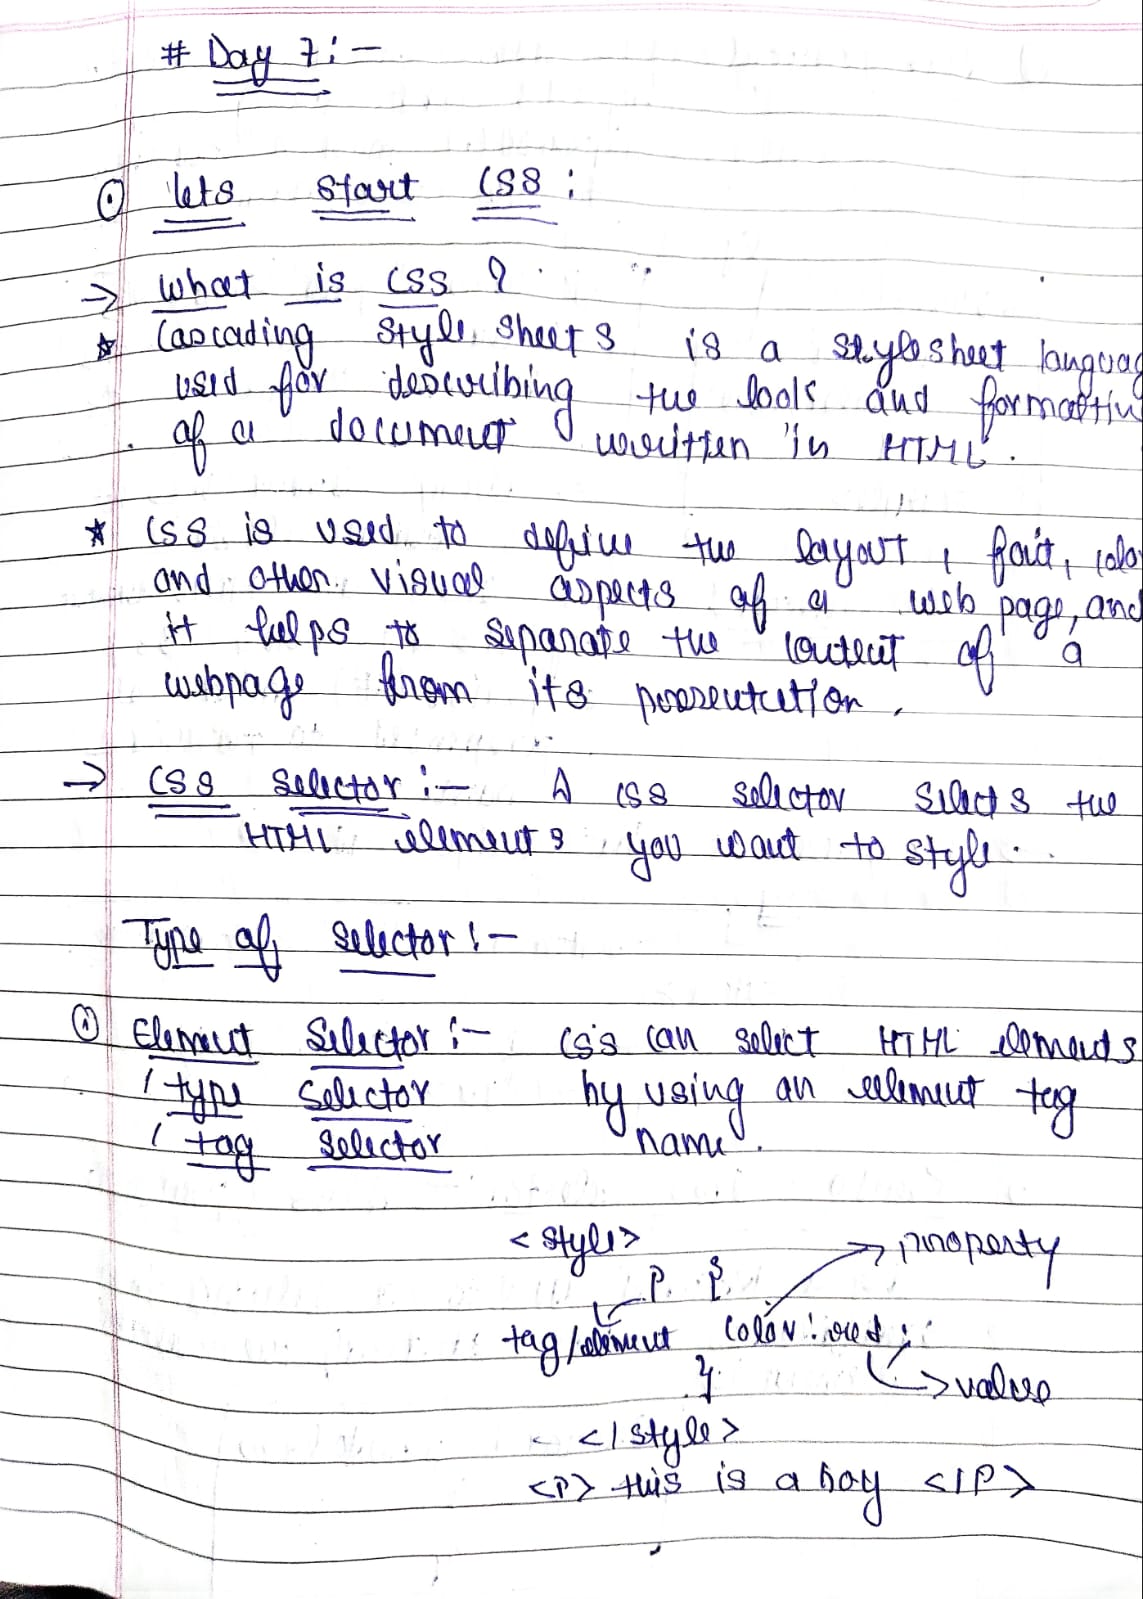 # Day 7:-
⊙ lets start CSS :
→ what is CSS ?
☆ Cascading Style Sheets is a stylesheet languag
used for describing the look and formattin
of a document written in HTML.
★ CSS is used to define the layout, font, colo
and other visual aspects of a web page, and
it helps to separate the content of a
webpage from its presentation.
→ CSS Selector :- A CSS selector selects the
HTML elements you want to style.
Type of Selector :-
① Element Selector :- CSS can select HTML elements
/ type Selector by using an element tag
/ tag Selector name.
<style>
→ property
P {
tag/element color : red ;
}
→ value
</style>
<P> this is a boy </P>